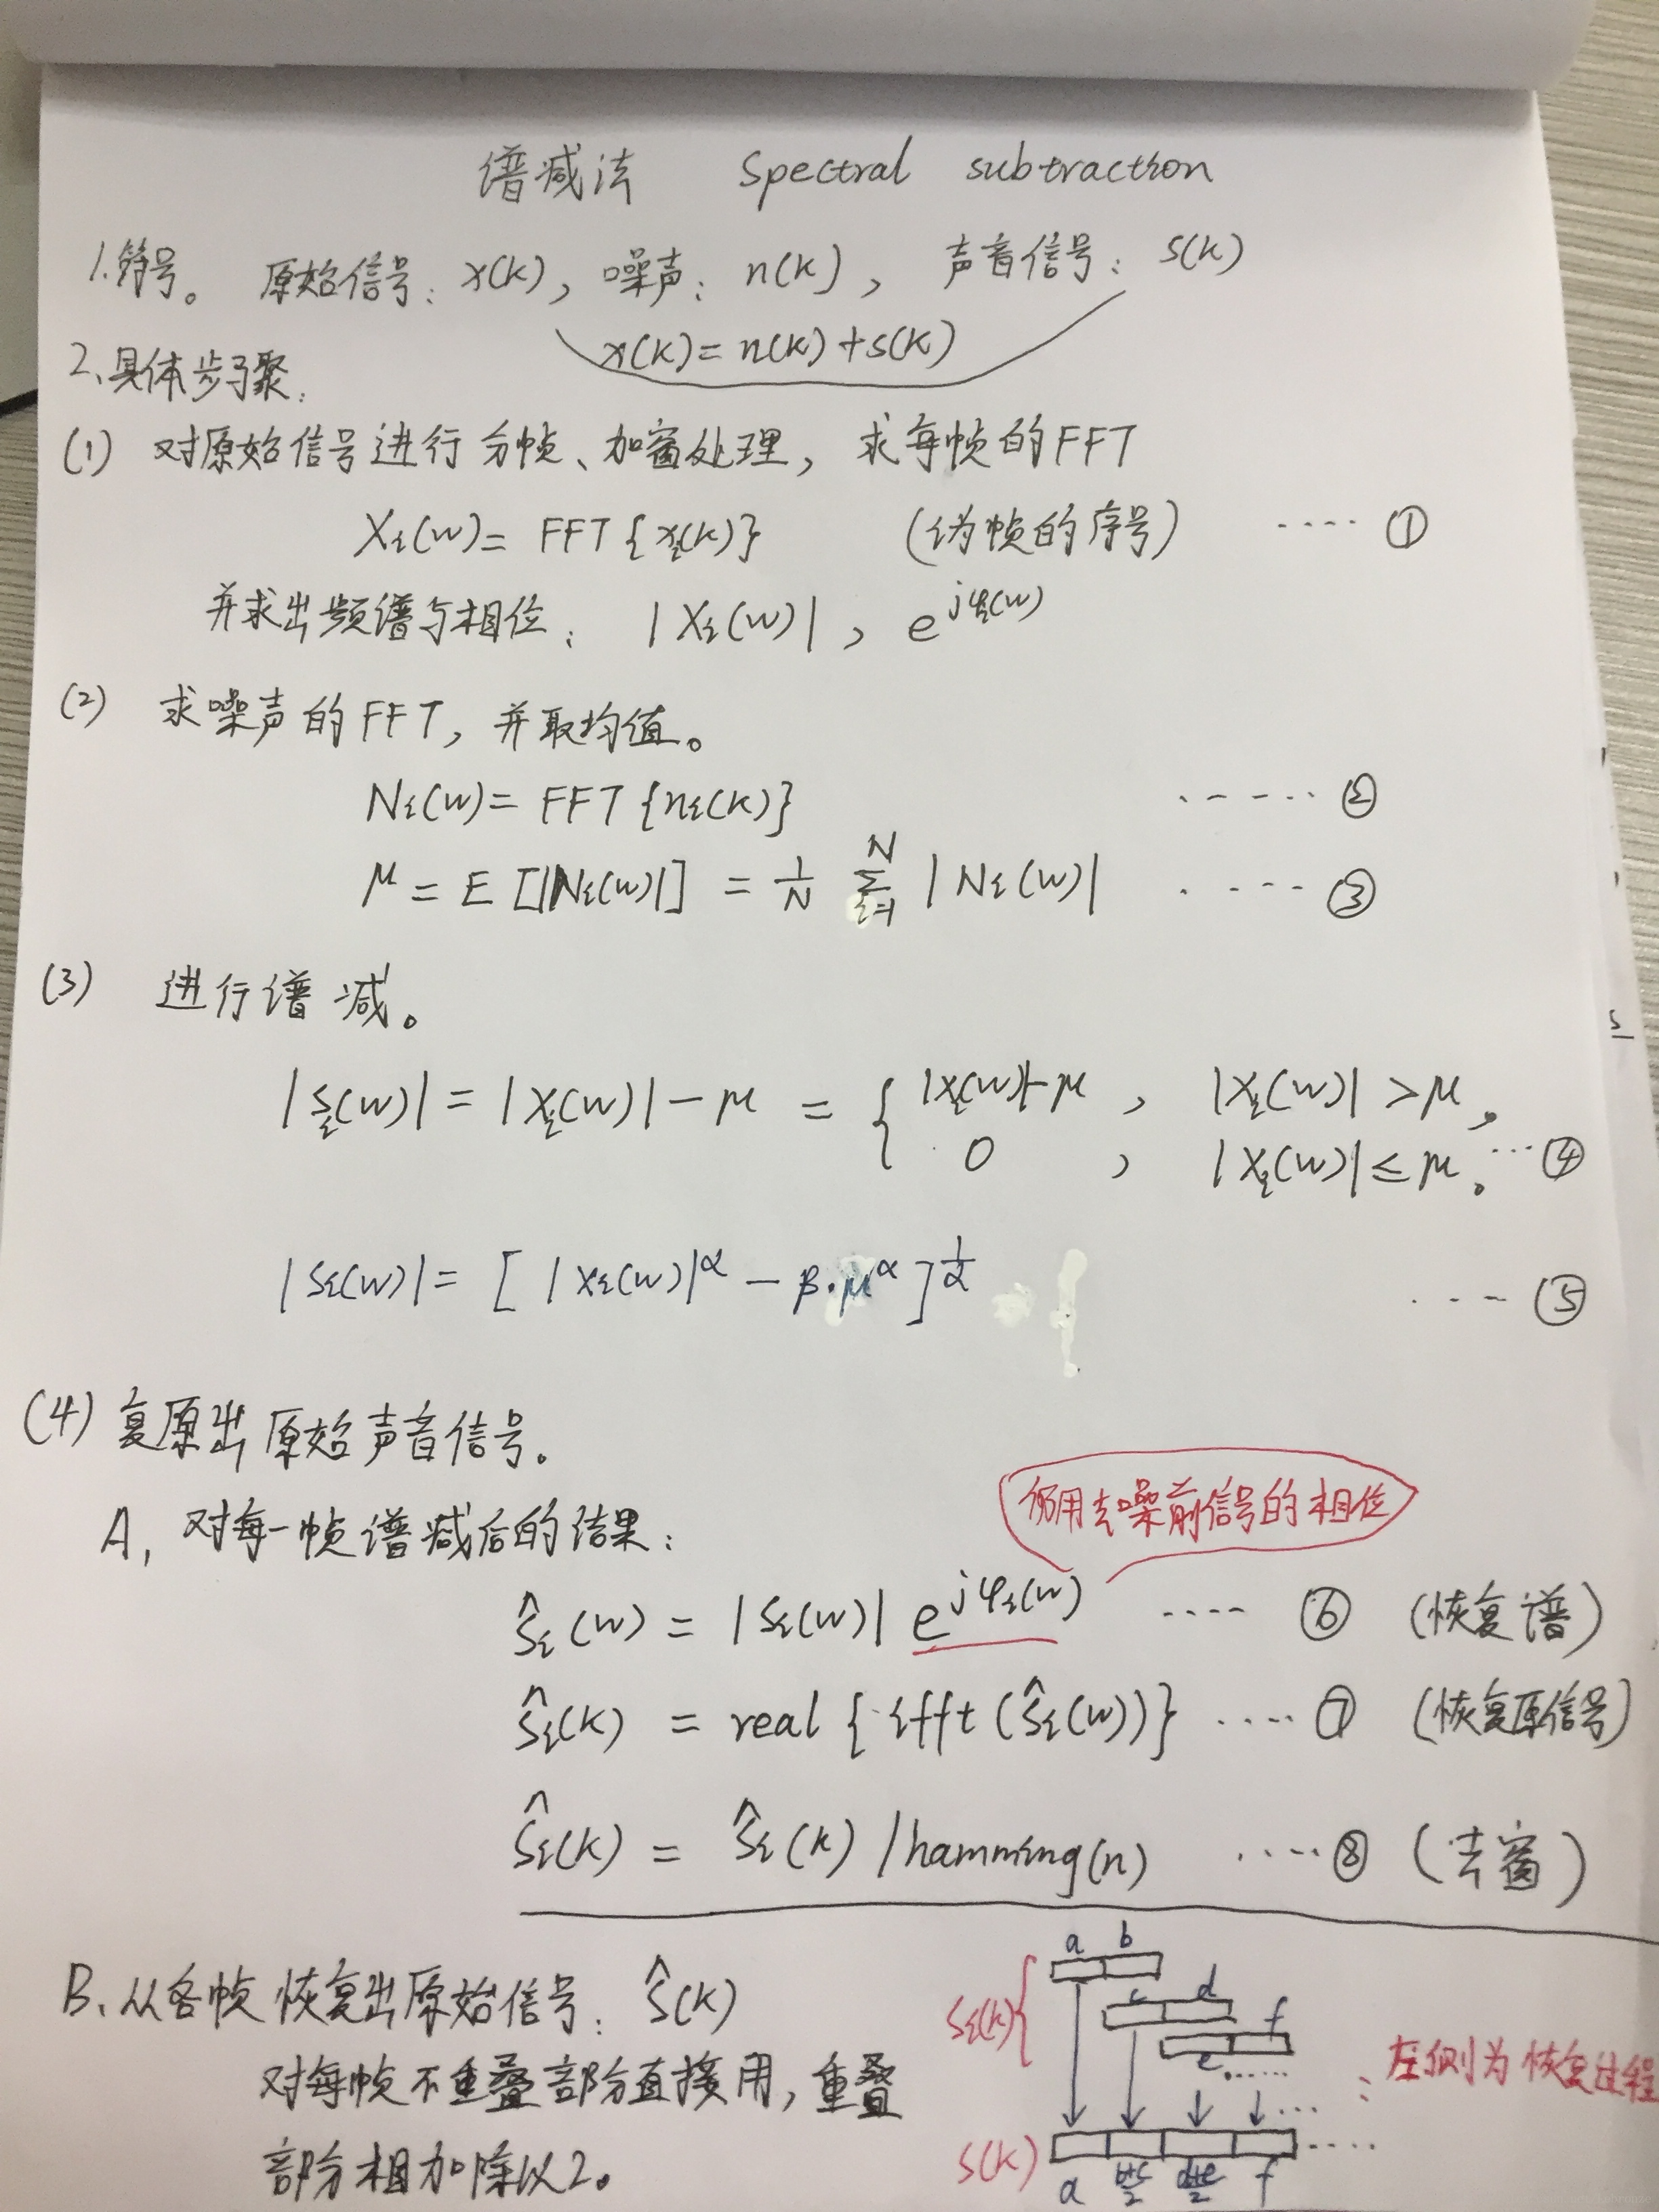 谱减法 Spectral subtraction
1.符号。 原始信号: x(k), 噪声: n(k), 声音信号: s(k)
x(k)=n(k)+s(k)
2、具体步骤:
(1) 对原始信号进行分帧、加窗处理, 求每帧的FFT
Xi(w)= FFT{xi(k)} (i为帧的序号) ···· ①
并求出频谱与相位: |Xi(w)|, e^jφi(w)
(2) 求噪声的FFT, 并取均值。
Ni(w)= FFT{ni(k)} ····· ②
μ = E[|Ni(w)|] = 1/N Σ_{i=1}^{N} |Ni(w)| ···· ③
(3) 进行谱减。
|Si(w)| = |Xi(w)| - μ = { |Xi(w)|-μ , |Xi(w)| > μ,
0 , |Xi(w)| ≤ μ。 ··· ④
|Si(w)| = [ |Xi(w)|^α - β·μ^α ]^{1/α} ··· ⑤
(4) 复原出原始声音信号。
仍用去噪前信号的相位
A, 对每一帧谱减后的结果:
Ŝi(w) = |Si(w)| e^jφi(w) ···· ⑥ (恢复谱)
ŝi(k) = real{ifft(Ŝi(w))} ···· ⑦ (恢复原信号)
ŝi(k) = ŝi(k) /hamming(n) ···· ⑧ (去窗)
B、从各帧恢复出原始信号: ŝ(k)
对每帧不重叠部分直接用, 重叠
部分相加除以2。
a b
si(k){ c d
f
e ·····
: 左侧为恢复过程
s(k) ····
a (b+c)/2 (d+e)/2 f